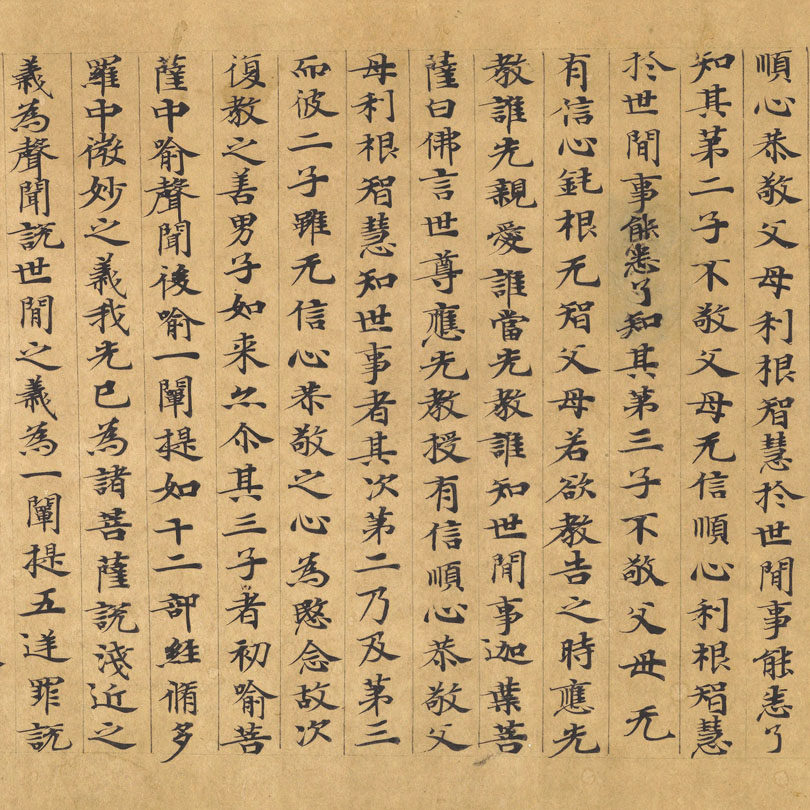 順心恭敬父母利根智慧於世間事能悉了
知其第二子不敬父母无信順心利根智慧
於世間事能悉了知其第三子不敬父母无
有信心鈍根无智父母若欲教告之時應先
教誰先親愛誰當先教誰知世間事迦葉菩
薩白佛言世尊應先教授有信順心恭敬父
母利根智慧知世事者其次第二乃及第三
而彼二子雖无信心恭敬之心為愍念故次
復教之善男子如来亦尒其三子者初喻菩
薩中喻聲聞後喻一闡提如十二部經脩多
羅中微妙之義我先已為諸菩薩説淺近之
義為聲聞説世間之義為一闡提五逆罪説